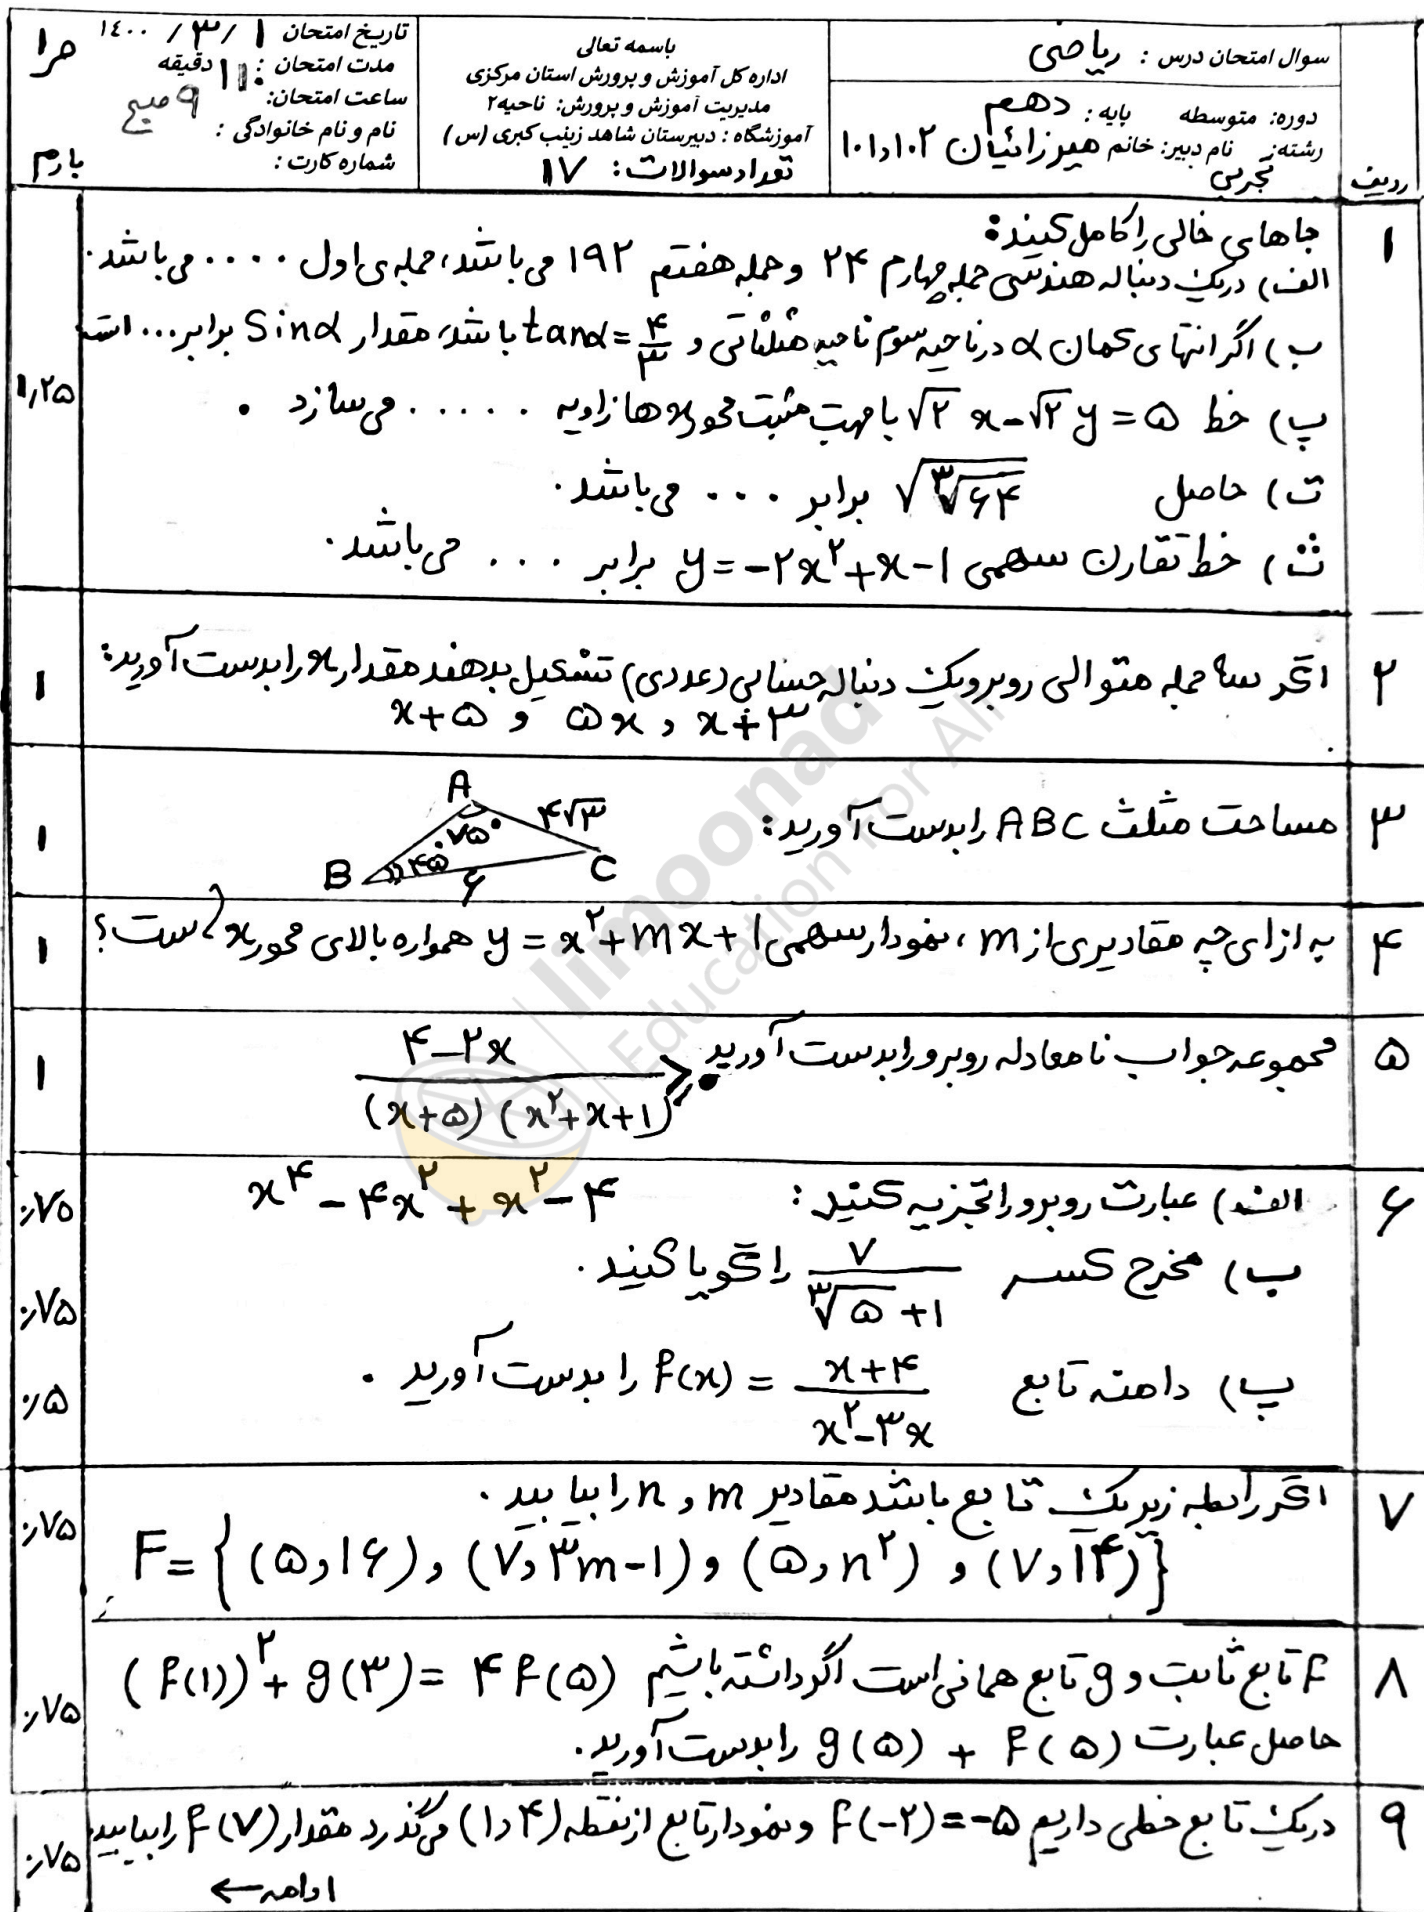 سوال امتحان درس : ریاضی
دوره: متوسطه پایه: دهم
رشته: تجربی نام دبیر: خانم میرزائیان ۱۰۲ و ۱۰۱
باسمه تعالی
اداره کل آموزش و پرورش استان مرکزی
مدیریت آموزش و پرورش: ناحیه۲
آموزشگاه : دبیرستان شاهد زینب کبری (س)
تعداد سوالات: ۱۷
تاریخ امتحان ۱ / ۳ / ۱۴۰۰
مدت امتحان : ۱۱۰ دقیقه
ساعت امتحان: ۹ صبح
نام و نام خانوادگی :
شماره کارت :
ص۱
ردیف
بارم
۱
جاهای خالی را کامل کنید:
الف) در یک دنباله هندسی جمله چهارم ۲۴ و جمله هفتم ۱۹۲ می باشد، جمله ی اول .... می باشد.
ب) اگر انتهای کمان α در ناحیه سوم ناحیه مثلثاتی و tanα = ۴/۳ باشد، مقدار Sinα برابر ... است
پ) خط √۲ x - √۲ y = ۵ با جهت مثبت محور x ها زاویه ..... می سازد .
ت) حاصل √(∛۶۴) برابر ... می باشد.
ث) خط تقارن سهمی y = -۲x² + x - ۱ برابر ... می باشد.
۱٫۲۵
۲
اگر سه جمله متوالی روبرو یک دنباله حسابی (عددی) تشکیل بدهند مقدار x را بدست آورید:
x+۵ و ۵x و x+۳
۱
۳
مساحت مثلث ABC را بدست آورید:
A
۷۵°
۴√۳
B
۴۵°
۶
C
۱
۴
به ازای چه مقادیری از m ، نمودار سهمی y = x² + mx + ۱ همواره بالای محور x است؟
۱
۵
مجموعه جواب نامعادله روبرو را بدست آورید
(۴-۲x)/((x+۵)(x²+x+۱)) > ۰
۱
۶
الف) عبارت روبرو را تجزیه کنید: x⁴ - ۴x² + x² - ۴
۰٫۷۵
ب) مخرج کسر ۷/(∛۵+۱) را گویا کنید.
۰٫۷۵
پ) دامنه تابع f(x) = (x+۴)/(x²-۳x) را بدست آورید .
۰٫۵
۷
اگر رابطه زیر یک تابع باشد مقادیر m و n را بیابید .
F = {(۵,۱۶), (۷,۳m-۱), (۵,n²), (۷,۱۴)}
۰٫۷۵
۸
f تابع ثابت و g تابع همانی است اگر داشته باشیم (f(۱))² + g(۳) = ۴f(۵)
حاصل عبارت g(۵) + f(۵) را بدست آورید.
۰٫۷۵
۹
در یک تابع خطی داریم f(-۲) = -۵ و نمودار تابع از نقطه (۱,۴) می گذرد مقدار f(۷) را بیابید
۰٫۷۵
ادامه ←
limoonad
Education For All